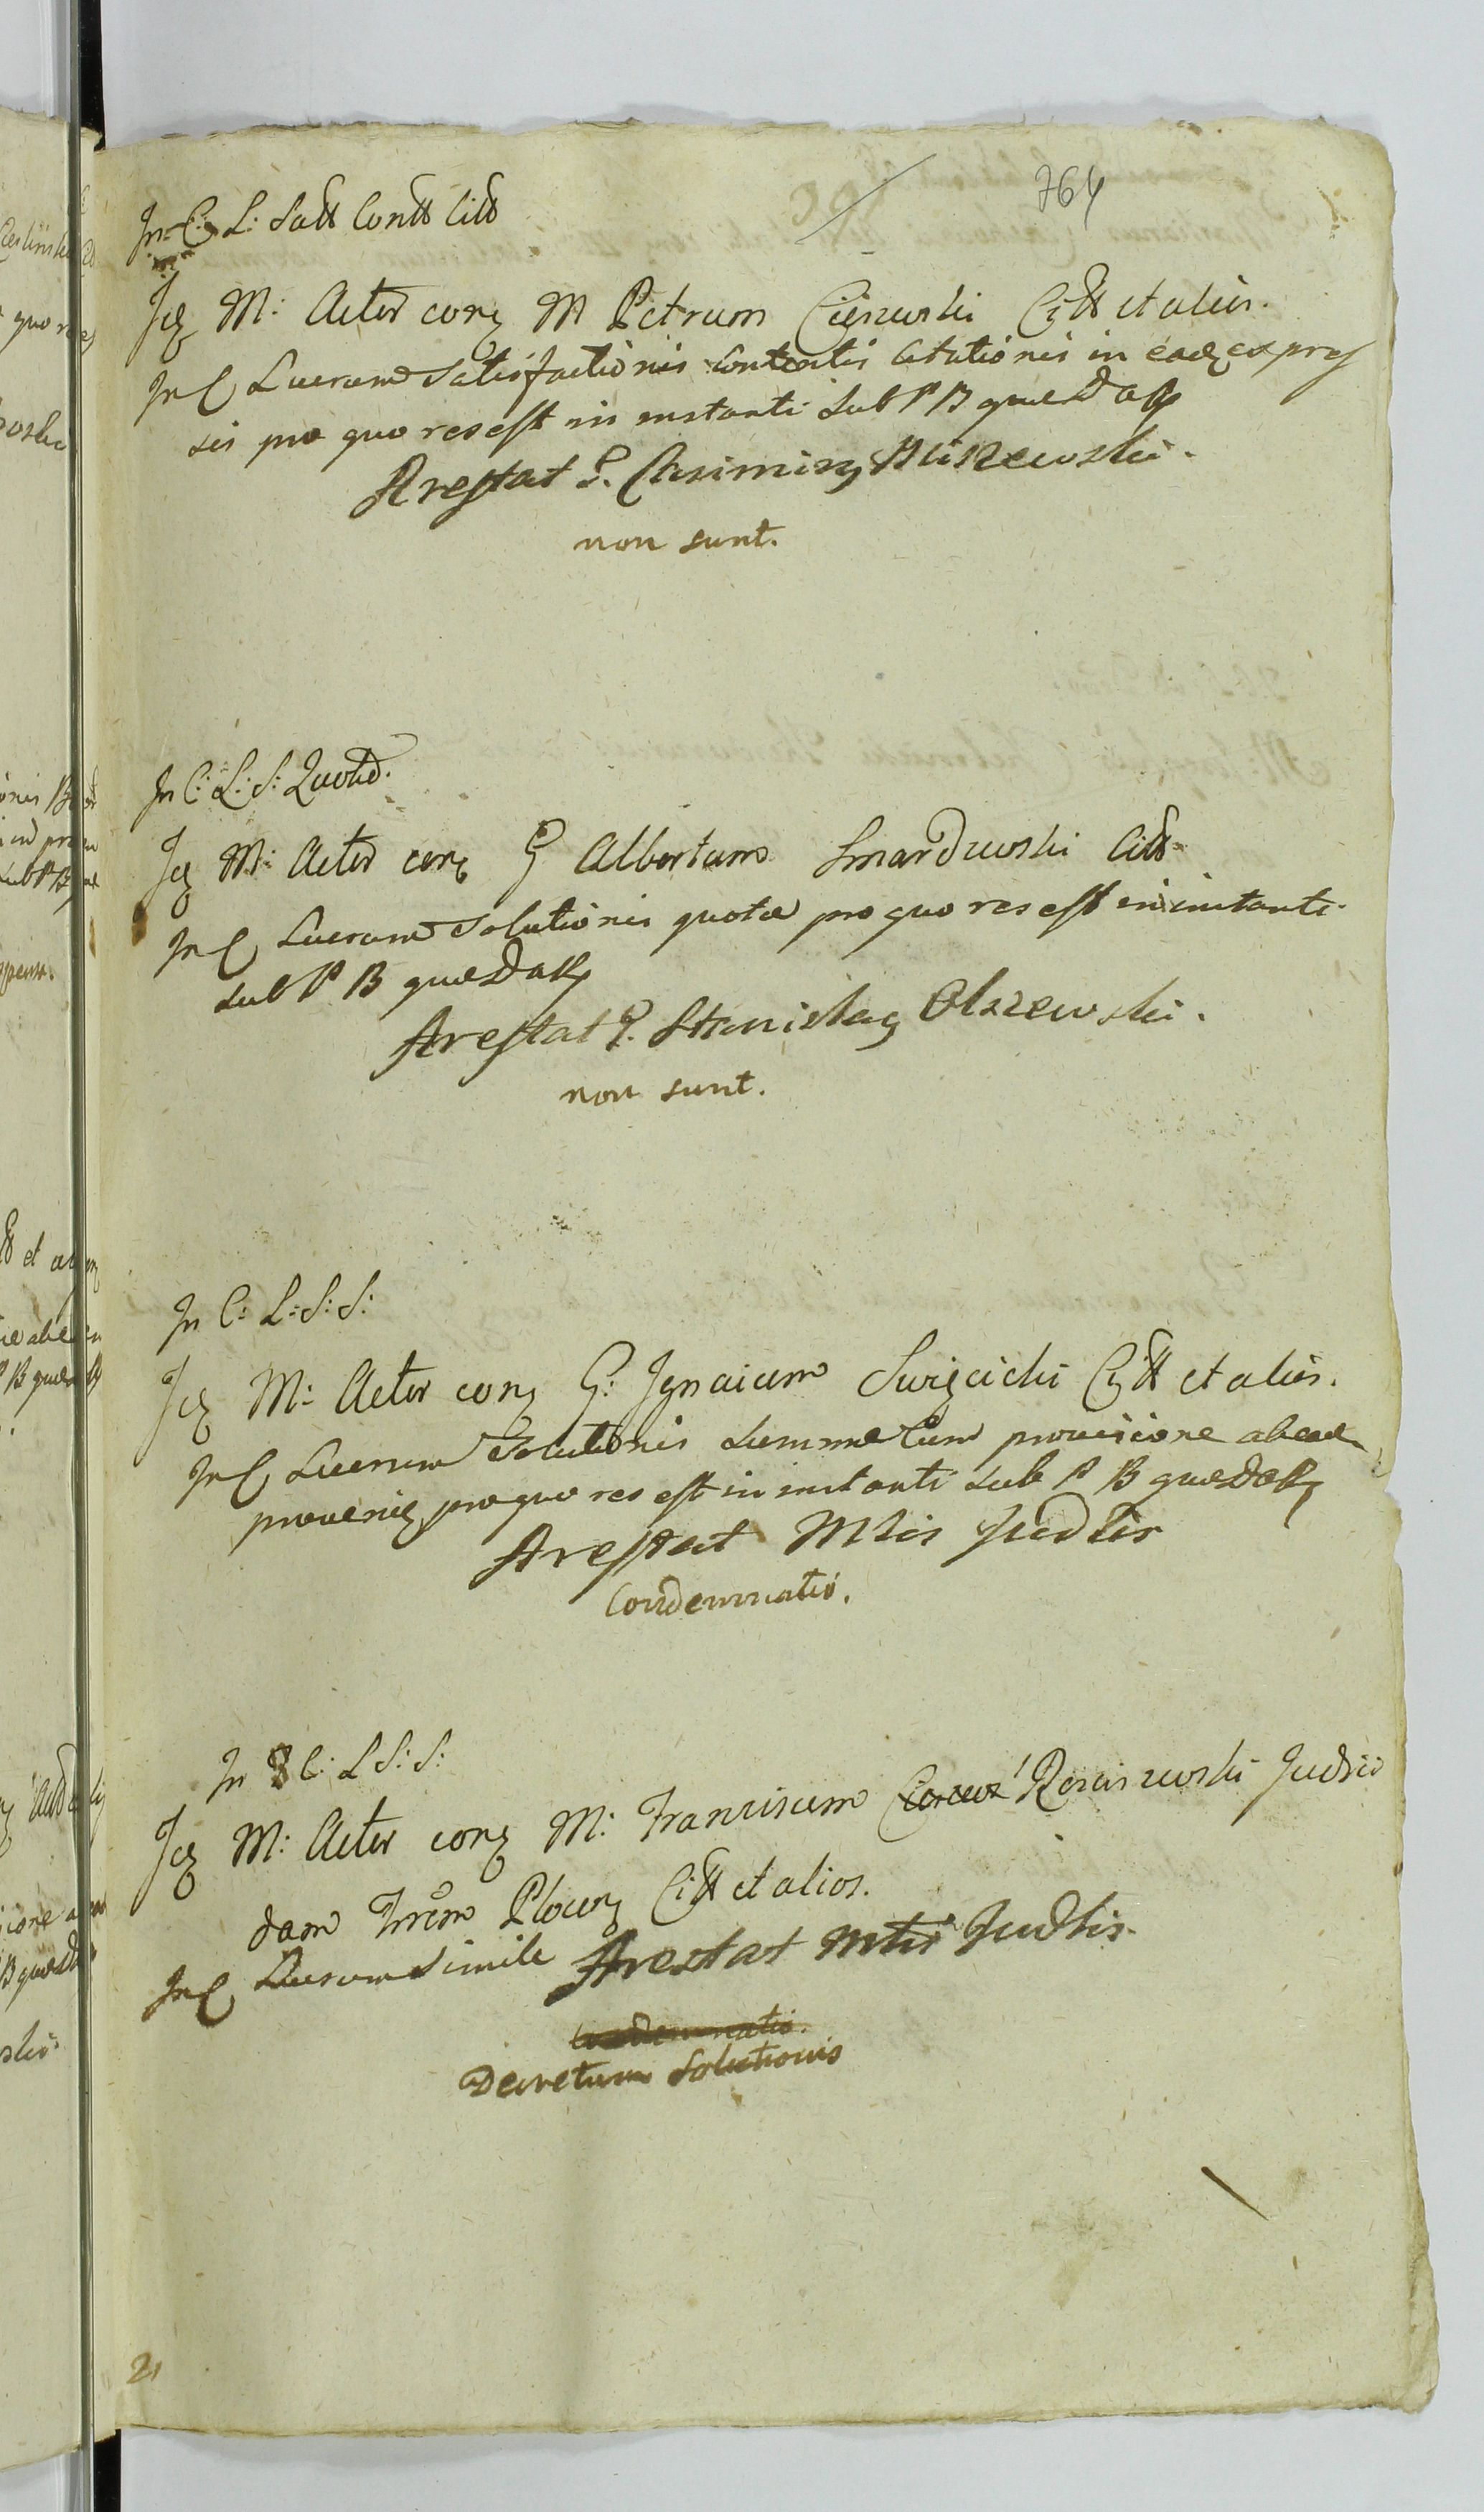 764
In C: L: Satt Contt Citt
Idq M: Actor conq M Petrum Cieszewski Citt et alios.
In C Lucrum Satisfactionis Contentis Citationis in eadq expres
sis pro quo res est in instanti sub P B quædaq
Arestat G. Casimirq Milszewski.
non sunt.
In C: L: S: Quotæ.
Idq M: Actor conq G Albertum Smardzewski Citt
In C Lucrum Solutionis quotæ pro quo res est in instanti
sub P B quædaq
Arestat G. Stanislaq Olszewski.
non sunt.
In C: L: S: S:
Idq M: Actor conq G: Ignacium Swięcicki Citt et alios.
In C Lucrum Solutionis summæ cum provisione ab ead
provenieq pro quo res est in instanti sub P B quædaq
Arestat Mtis Judlis
Condemnatio.
In C: L S: S:
Idq M: Actor conq M: Franciscum Rosciszewski Judicē
dam Trrem Plocenq Citt et alios.
In C Lucrum Simile Arestat Mtis Judlis.
Condemnatio.
Decretum Solutionis
21